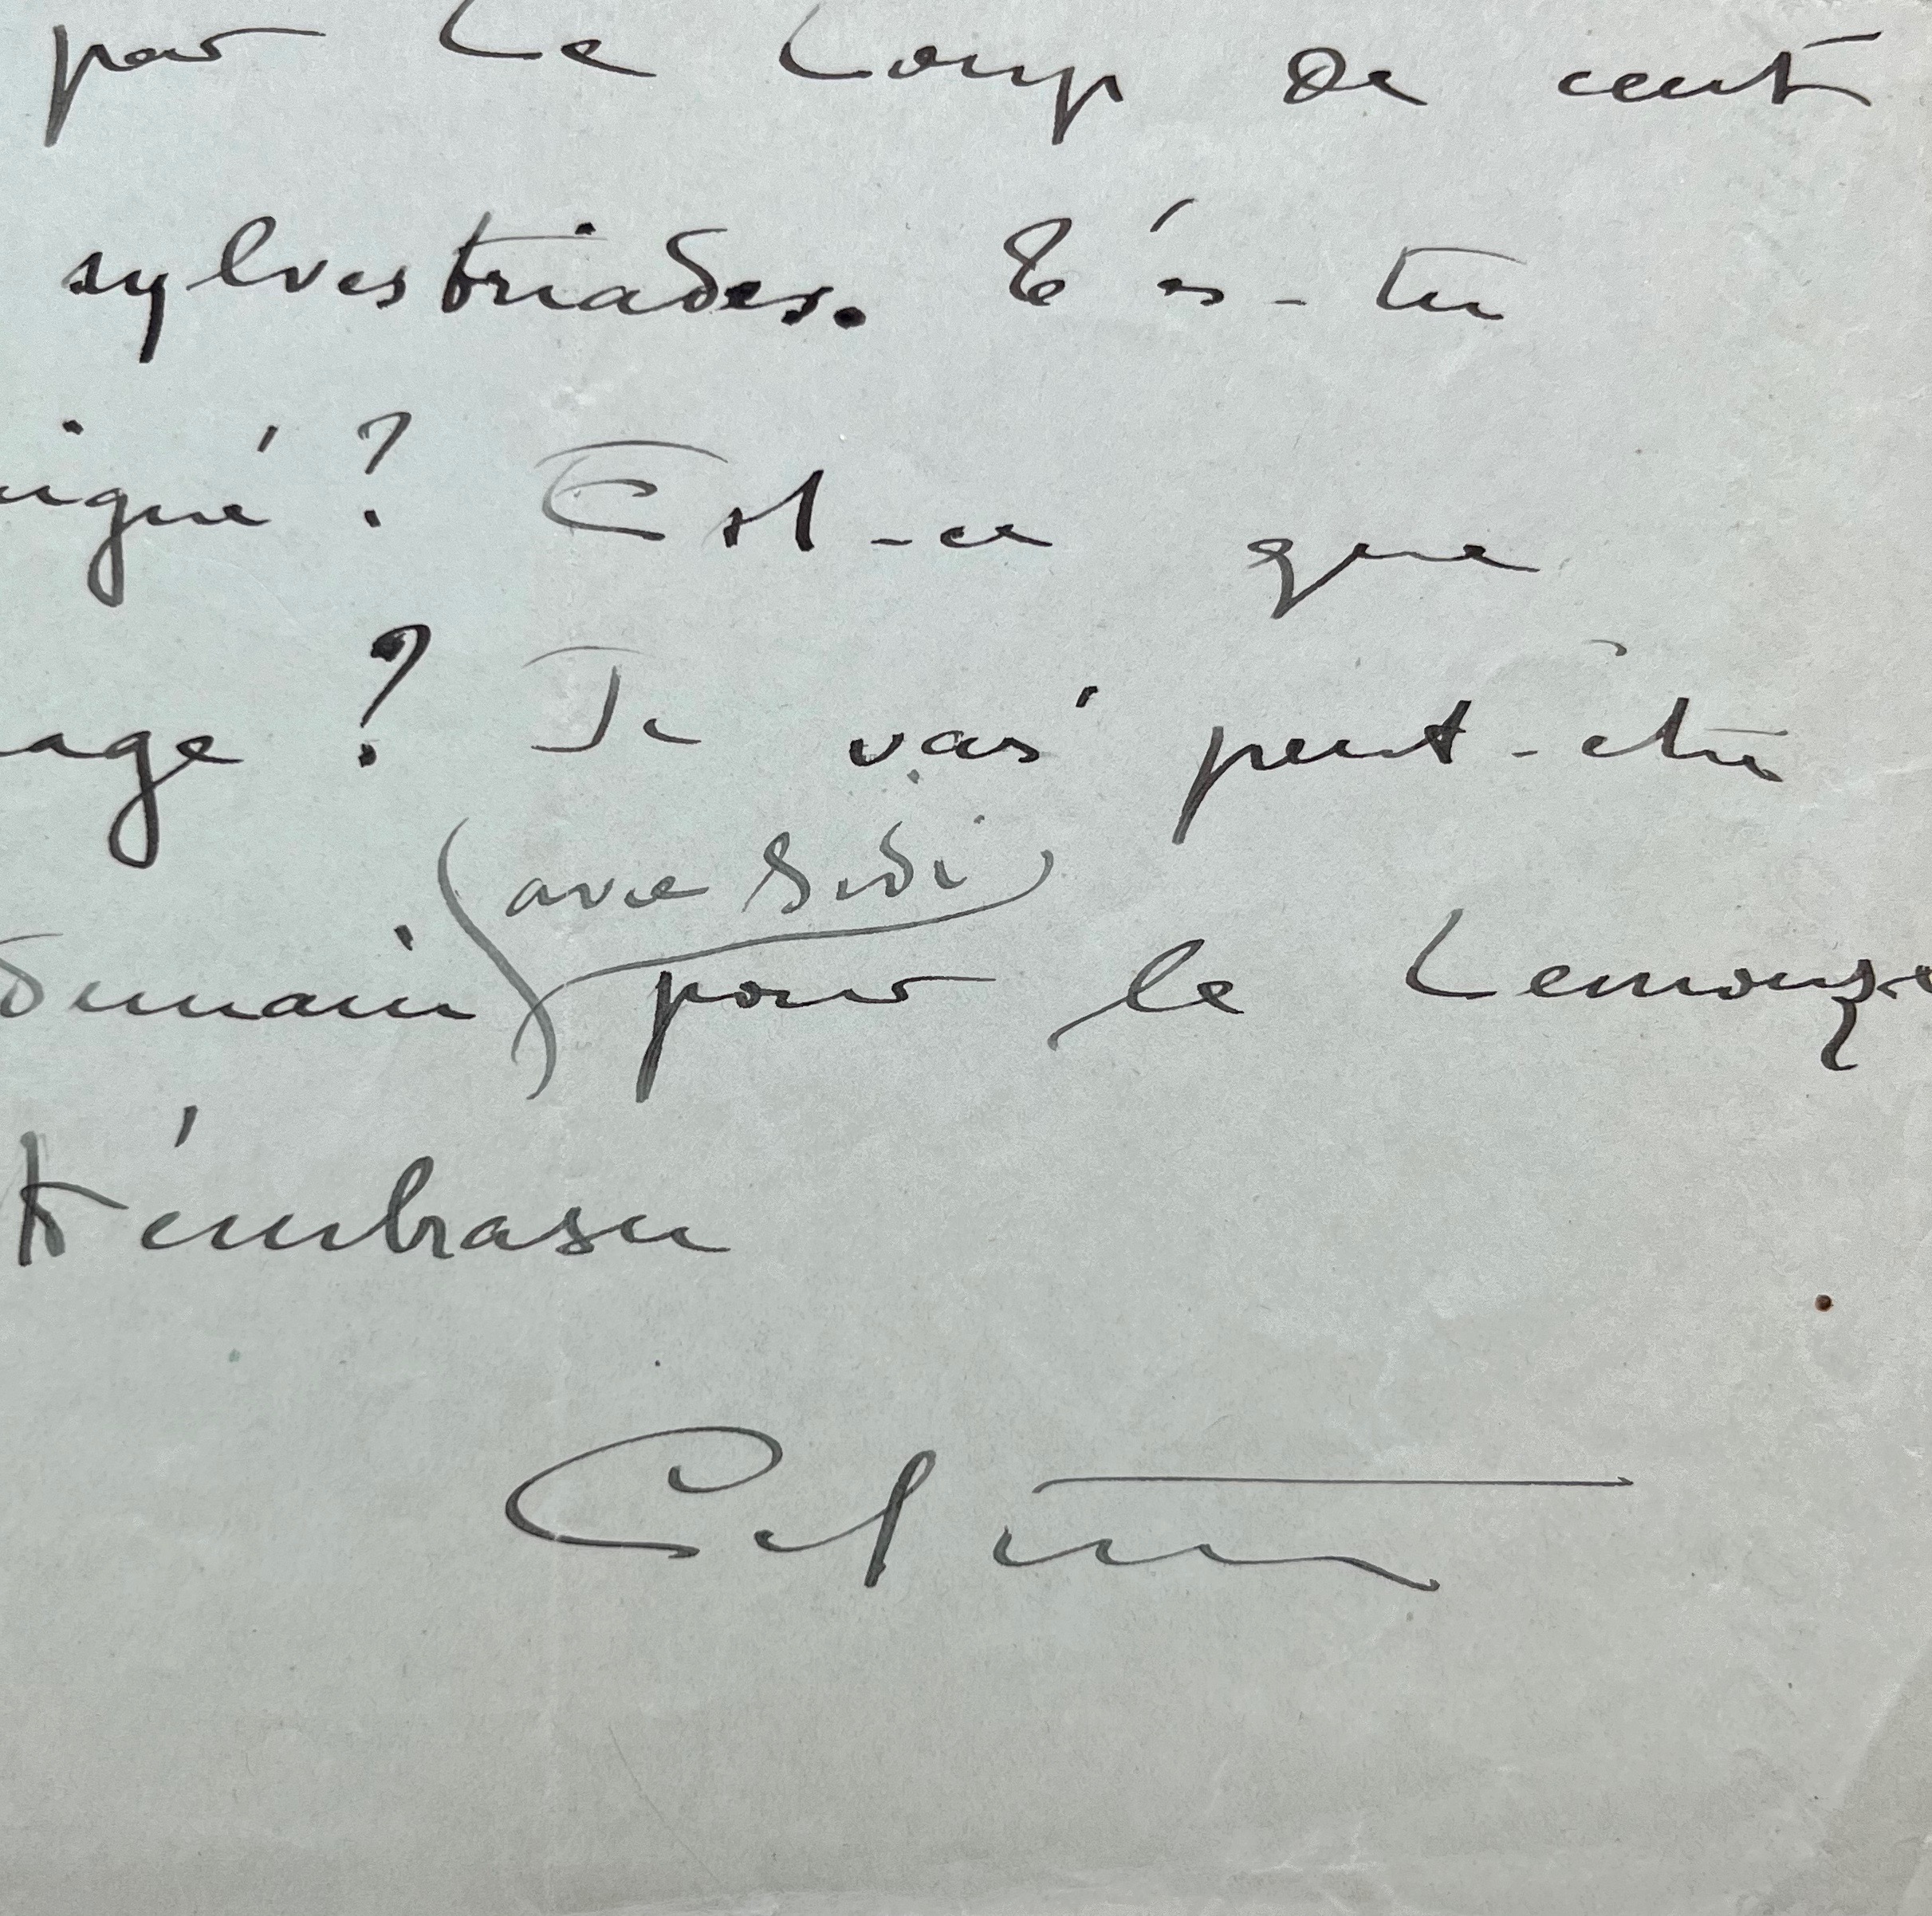 par Le Loup de cent
sylvestriades. T'es-tu
igné ? Est-ce que
age ? Je vais peut-être
(avec Sidi)
demain pour le Lemouzi
t'embrasse
Colette